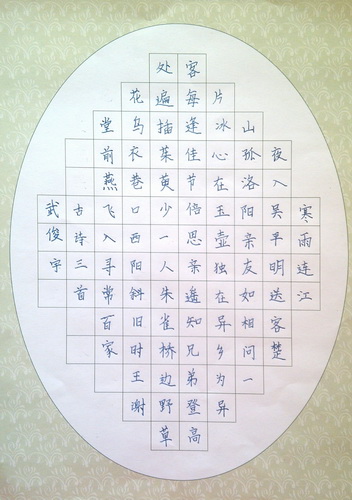 寒雨连江
夜入吴平明送客楚
山孤洛阳亲友如相问一
片冰心在玉壶独在异乡为异
客每逢佳节倍思亲遥知兄弟登高
处遍插茱萸少一人朱雀桥边野草
花乌衣巷口西阳斜旧时王谢
堂前燕飞入寻常百家
古诗三首
武俊宇